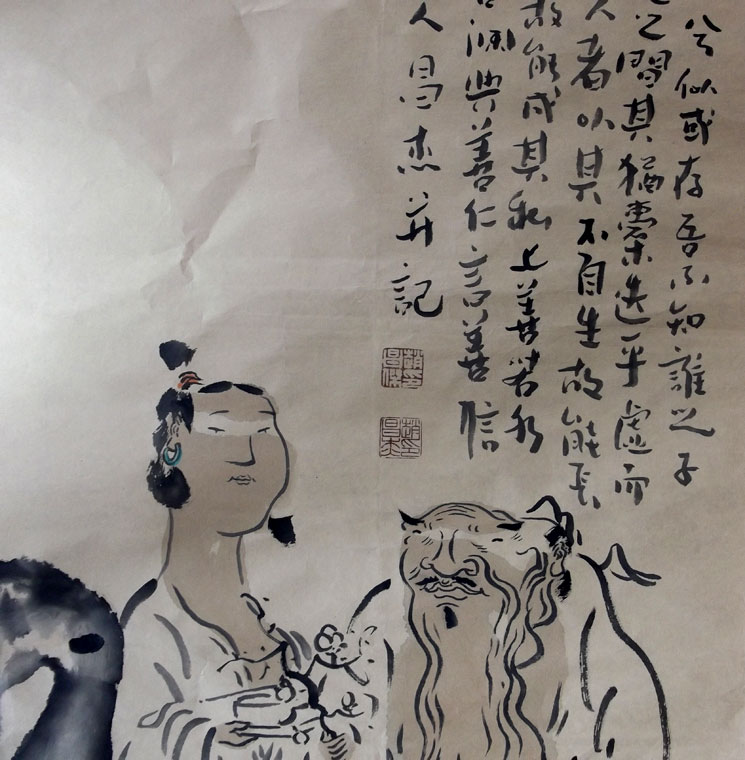 兮似或存吾不知誰之子
之間其猶橐乎虛而
久者以其不自生故能長
故能成其私上善若水
淵與善仁言善信
人昌杰并記